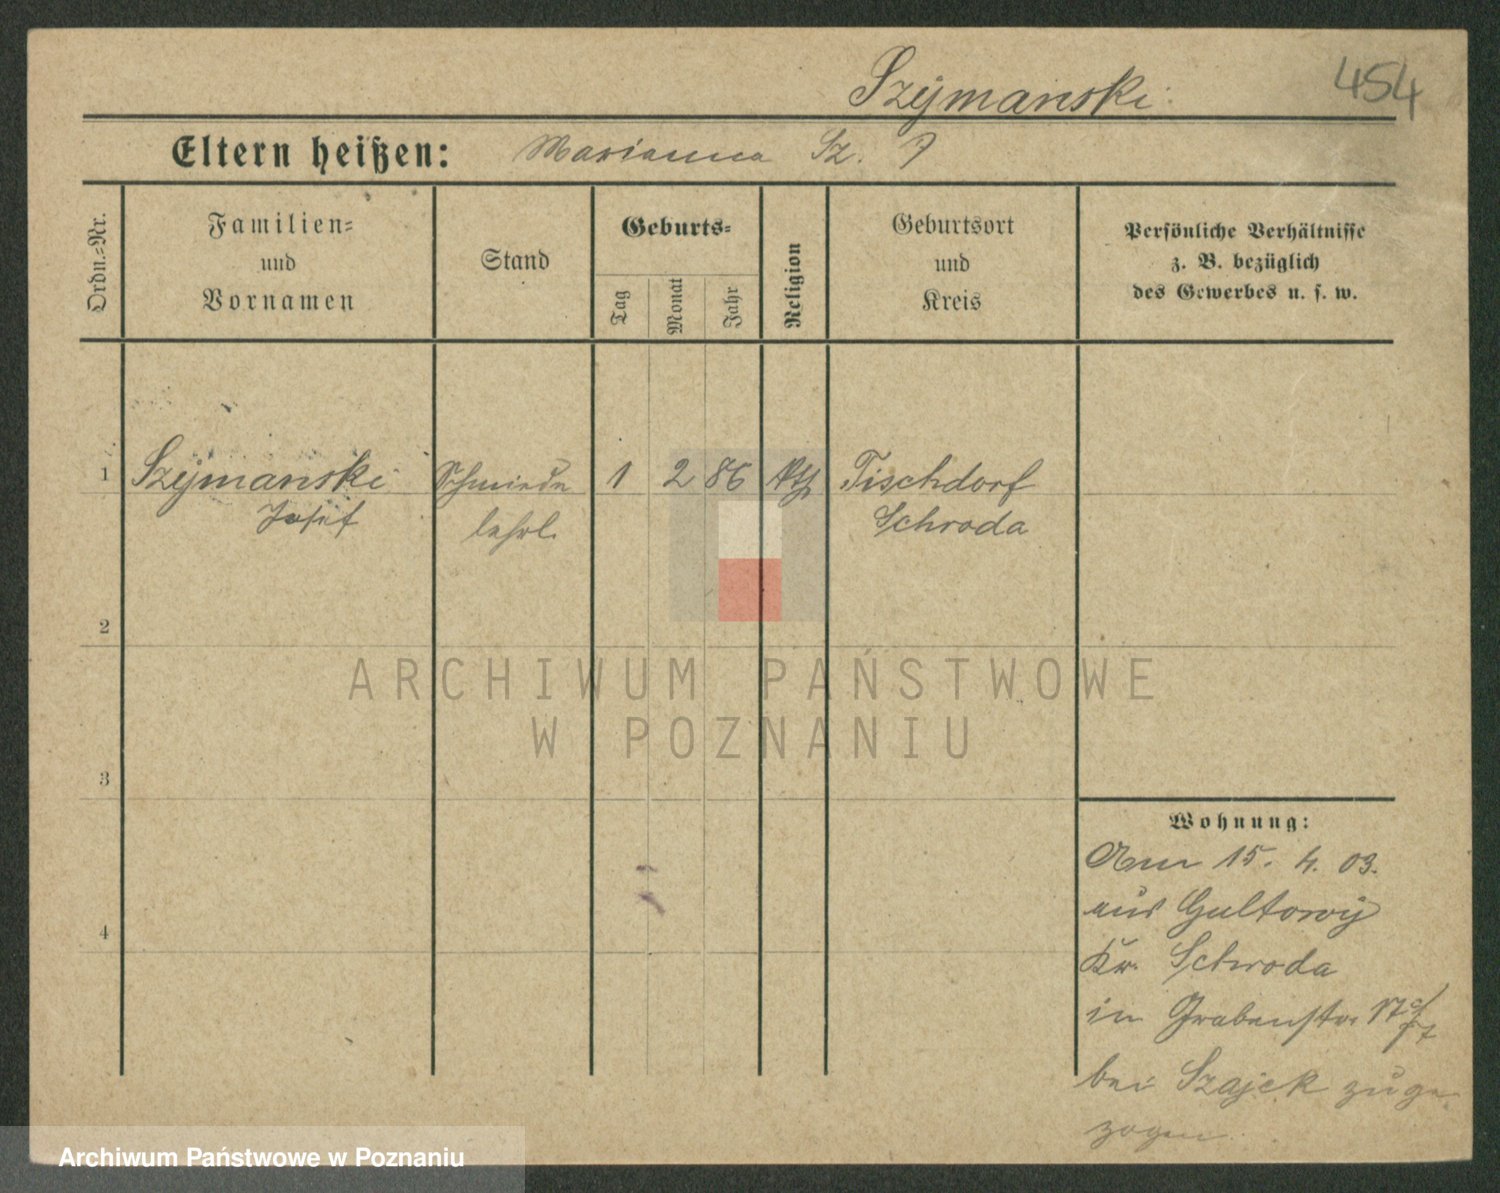 Szejmanski
454
Eltern heißen: Marianna Sz. ?
Ordn.-Nr.
Familien-
und
Vornamen
Stand
Geburts-
Tag
Monat
Jahr
Religion
Geburtsort
und
Kreis
Persönliche Verhältnisse
z. B. bezüglich
des Gewerbes u. s. w.
1 Szejmanski Schmiede 1 2 86 kth Tischdorf
Josef lehrl. Schroda
2
3
4
Wohnung:
Am 15. 4. 03.
aus Gultowy
Kr. Schroda
in Grabenstr. 17
bei Szajek zuge-
zogen
ARCHIWUM PAŃSTWOWE
W POZNANIU
Archiwum Państwowe w Poznaniu